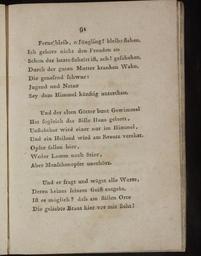 91
Ferne bleib, o Jüngling! bleibe stehen.
Ich gehöre nicht den Freuden an.
Schon der letzte Schritt ist, ach! geschehen,
Durch der guten Mutter kranken Wahn,
Die genesend schwur:
Jugend und Natur
Sey dem Himmel künftig unterthan.
Und der alten Götter bunt Gewimmel
Hat sogleich das stille Haus geleert,
Unsichtbar wird einer nur im Himmel,
Und ein Heiland wird am Kreutz verehrt.
Opfer fallen hier,
Weder Lamm noch Stier,
Aber Menschenopfer unerhört.
Und er fragt und wäget alle Worte,
Deren keines seinem Geist entgeht.
Ist es möglich? daß am stillen Orte
Die geliebte Braut hier vor mir steht!